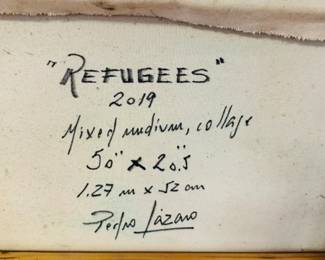 "REFUGEES"
2019
Mixed mudium, collage
50" x 20.5"
1.27 m x 52 cm
Pedro Lázaro